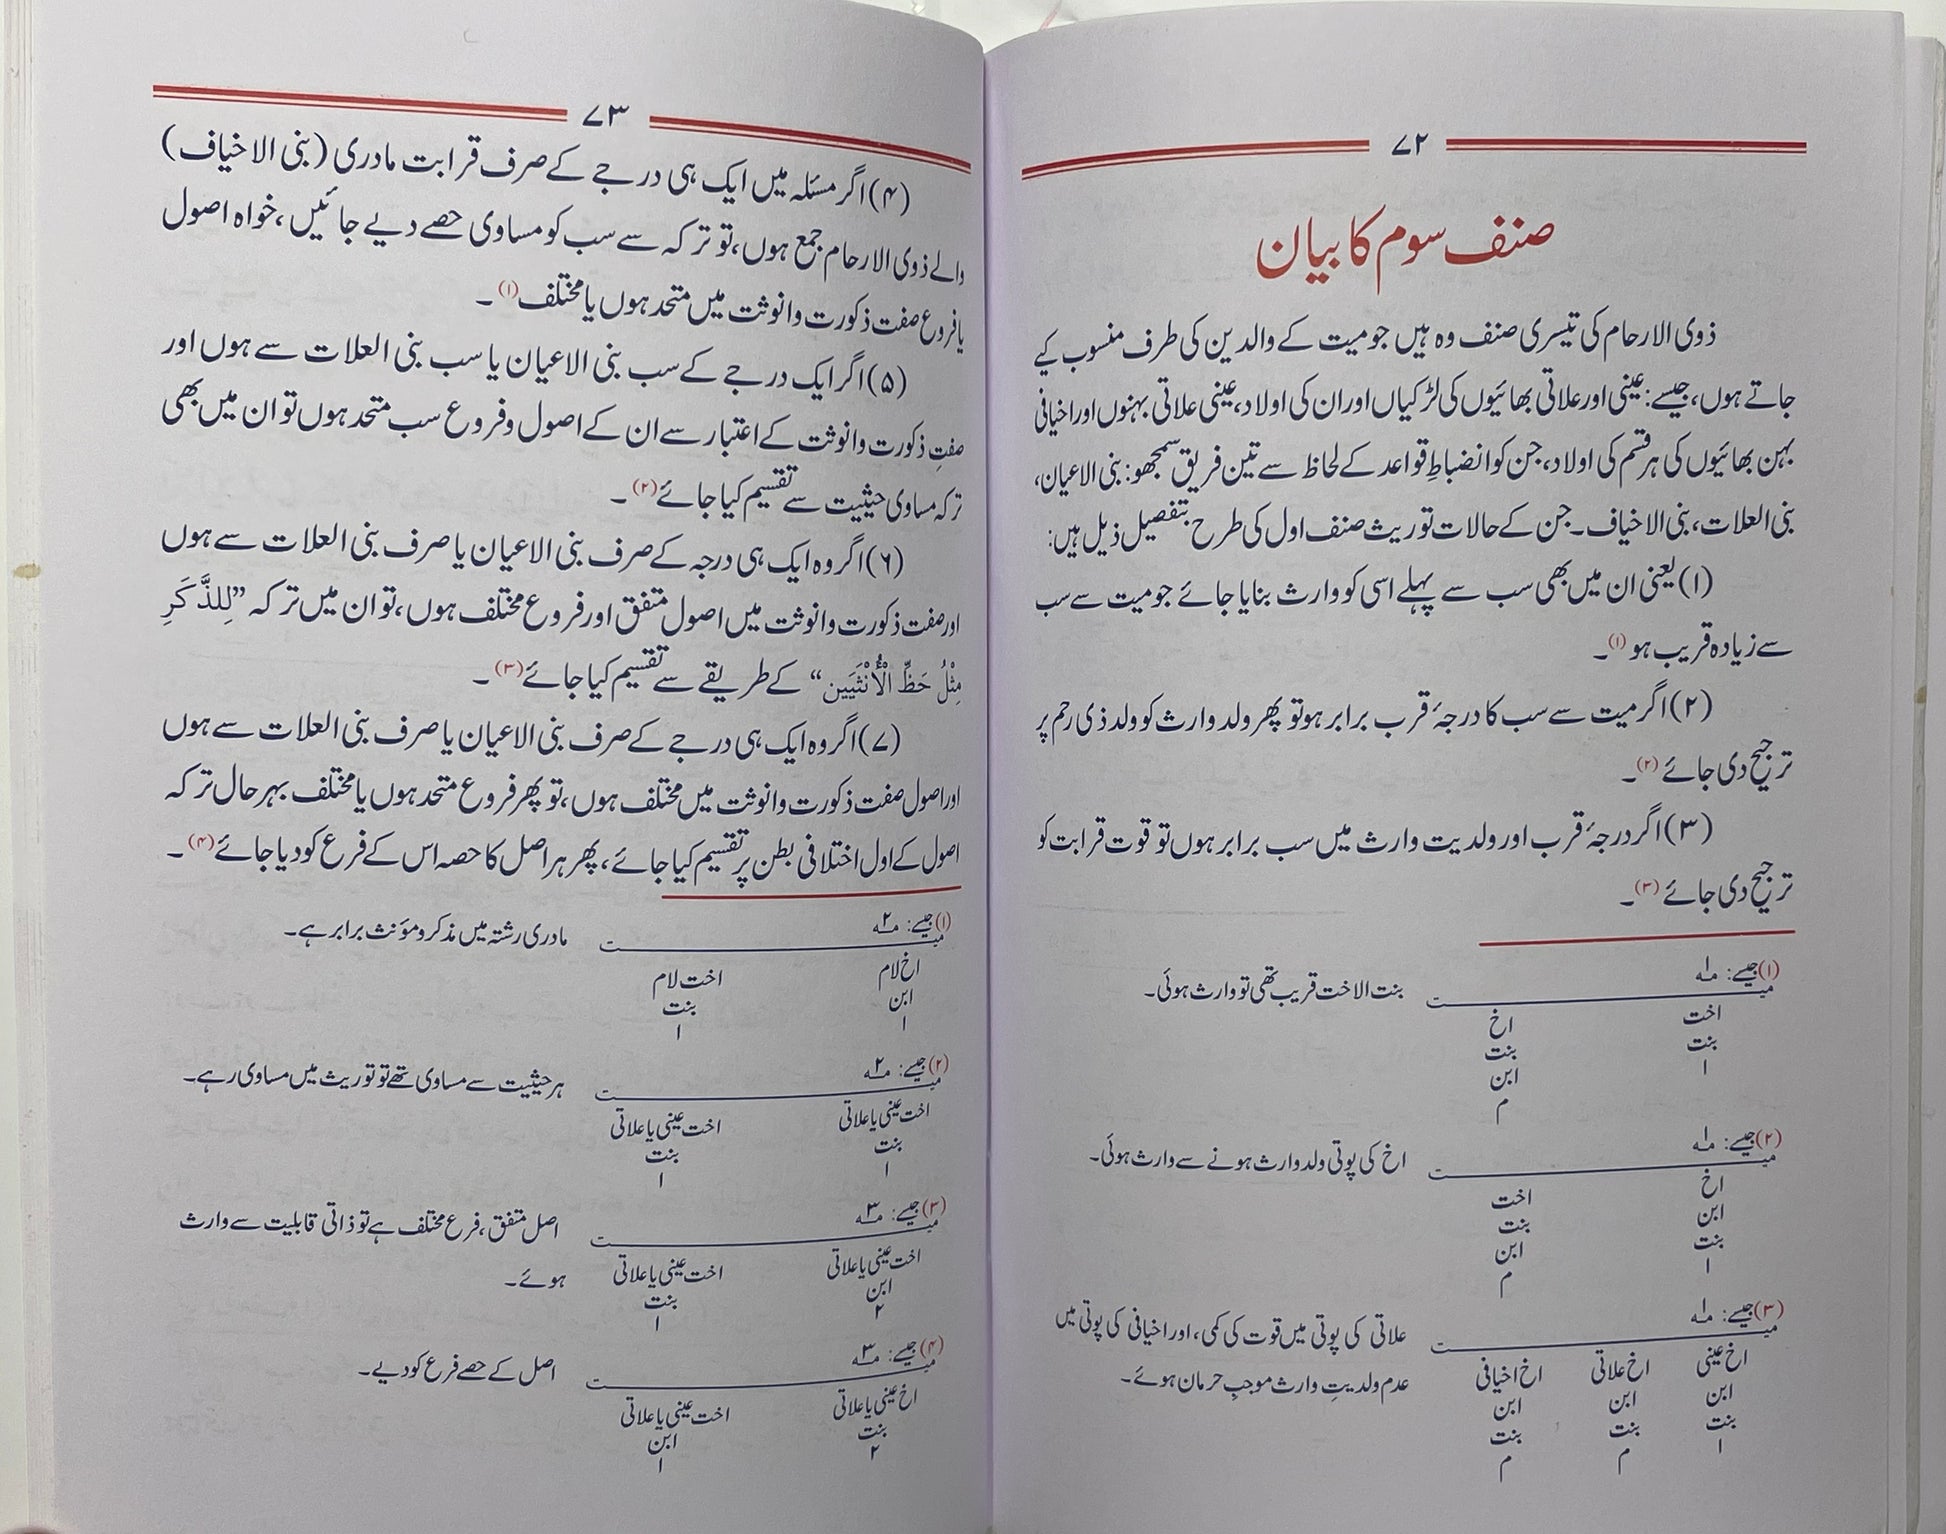 ۷۲
صنف سوم کا بیان
ذوی الارحام کی تیسری صنف وہ ہیں جو میت کے والدین کی طرف منسوب کیے
جاتے ہوں، جیسے: عینی اور علاتی بھائیوں کی لڑکیاں اور ان کی اولاد، عینی علاتی بہنوں اور اخیافی
بہن بھائیوں کی ہر قسم کی اولاد، جن کو انضباطِ قواعد کے لحاظ سے تین فریق سمجھو: بنی الاعیان،
بنی العلات، بنی الاخیاف۔ جن کے حالات توریث صنف اول کی طرح بتفصیل ذیل ہیں:
(۱) یعنی ان میں بھی سب سے پہلے اسی کو وارث بنایا جائے جو میت سے سب
سے زیادہ قریب ہو (۱)۔
(۲) اگر میت سے سب کا درجۂ قرب برابر ہو تو پھر ولد وارث کو ولد ذی رحم پر
ترجیح دی جائے (۲)۔
(۳) اگر درجۂ قرب اور ولدیت وارث میں سب برابر ہوں تو قوت قرابت کو
ترجیح دی جائے (۳)۔
(۱) جیسے: مـ۱ـہ
میـت بنت الاخت قریب تھی تو وارث ہوئی۔
اخت اخ
بنت بنت
۱ ابن
م
(۲) جیسے: مـ۱ـہ
میـت اخ کی پوتی ولد وارث ہونے سے وارث ہوئی۔
اخ اخت
ابن بنت
بنت ابن
۱ م
(۳) جیسے: مـ۱ـہ
میـت علاتی کی پوتی میں قوت کی کمی، اور اخیافی کی پوتی میں
اخ عینی اخ علاتی اخ اخیافی عدم ولدیتِ وارث موجبِ حرمان ہوئے۔
ابن ابن ابن
بنت بنت بنت
۱ م م
۷۳
(۴) اگر مسئلہ میں ایک ہی درجے کے صرف قرابت مادری (بنی الاخیاف)
والے ذوی الارحام جمع ہوں، تو ترکہ سے سب کو مساوی حصے دیے جائیں، خواہ اصول
یا فروع صفت ذکورت وانوثت میں متحد ہوں یا مختلف (۱)۔
(۵) اگر ایک درجے کے سب بنی الاعیان یا سب بنی العلات سے ہوں اور
صفتِ ذکورت وانوثت کے اعتبار سے ان کے اصول وفروع سب متحد ہوں تو ان میں بھی
ترکہ مساوی حیثیت سے تقسیم کیا جائے (۲)۔
(۶) اگر وہ ایک ہی درجہ کے صرف بنی الاعیان یا صرف بنی العلات سے ہوں
اور صفت ذکورت وانوثت میں اصول متفق اور فروع مختلف ہوں، تو ان میں ترکہ ”لِلذَّکَرِ
مِثْلُ حَظِّ الْأُنْثَیَین“ کے طریقے سے تقسیم کیا جائے (۳)۔
(۷) اگر وہ ایک ہی درجے کے صرف بنی الاعیان یا صرف بنی العلات سے ہوں
اور اصول صفت ذکورت وانوثت میں مختلف ہوں، تو پھر فروع متحد ہوں یا مختلف بہر حال ترکہ
اصول کے اول اختلافی بطن پر تقسیم کیا جائے، پھر ہر اصل کا حصہ اس کے فرع کو دیا جائے (۴)۔
(۱) جیسے: مـ۲ـہ
میـت مادری رشتہ میں مذکر ومؤنث برابر ہے۔
اخ لام اخت لام
ابن بنت
۱ ۱
(۲) جیسے: مـ۲ـہ
میـت ہر حیثیت سے مساوی تھے تو توریث میں مساوی رہے۔
اخت عینی یا علاتی اخت عینی یا علاتی
بنت بنت
۱ ۱
(۳) جیسے: مـ۳ـہ
میـت اصل متفق، فرع مختلف ہے تو ذاتی قابلیت سے وارث
اخت عینی یا علاتی اخت عینی یا علاتی ہوئے۔
ابن بنت
۲ ۱
(۴) جیسے: مـ۳ـہ
میـت اصل کے حصے فرع کو دیے۔
اخ عینی یا علاتی اخت عینی یا علاتی
بنت ابن
۲ ۱